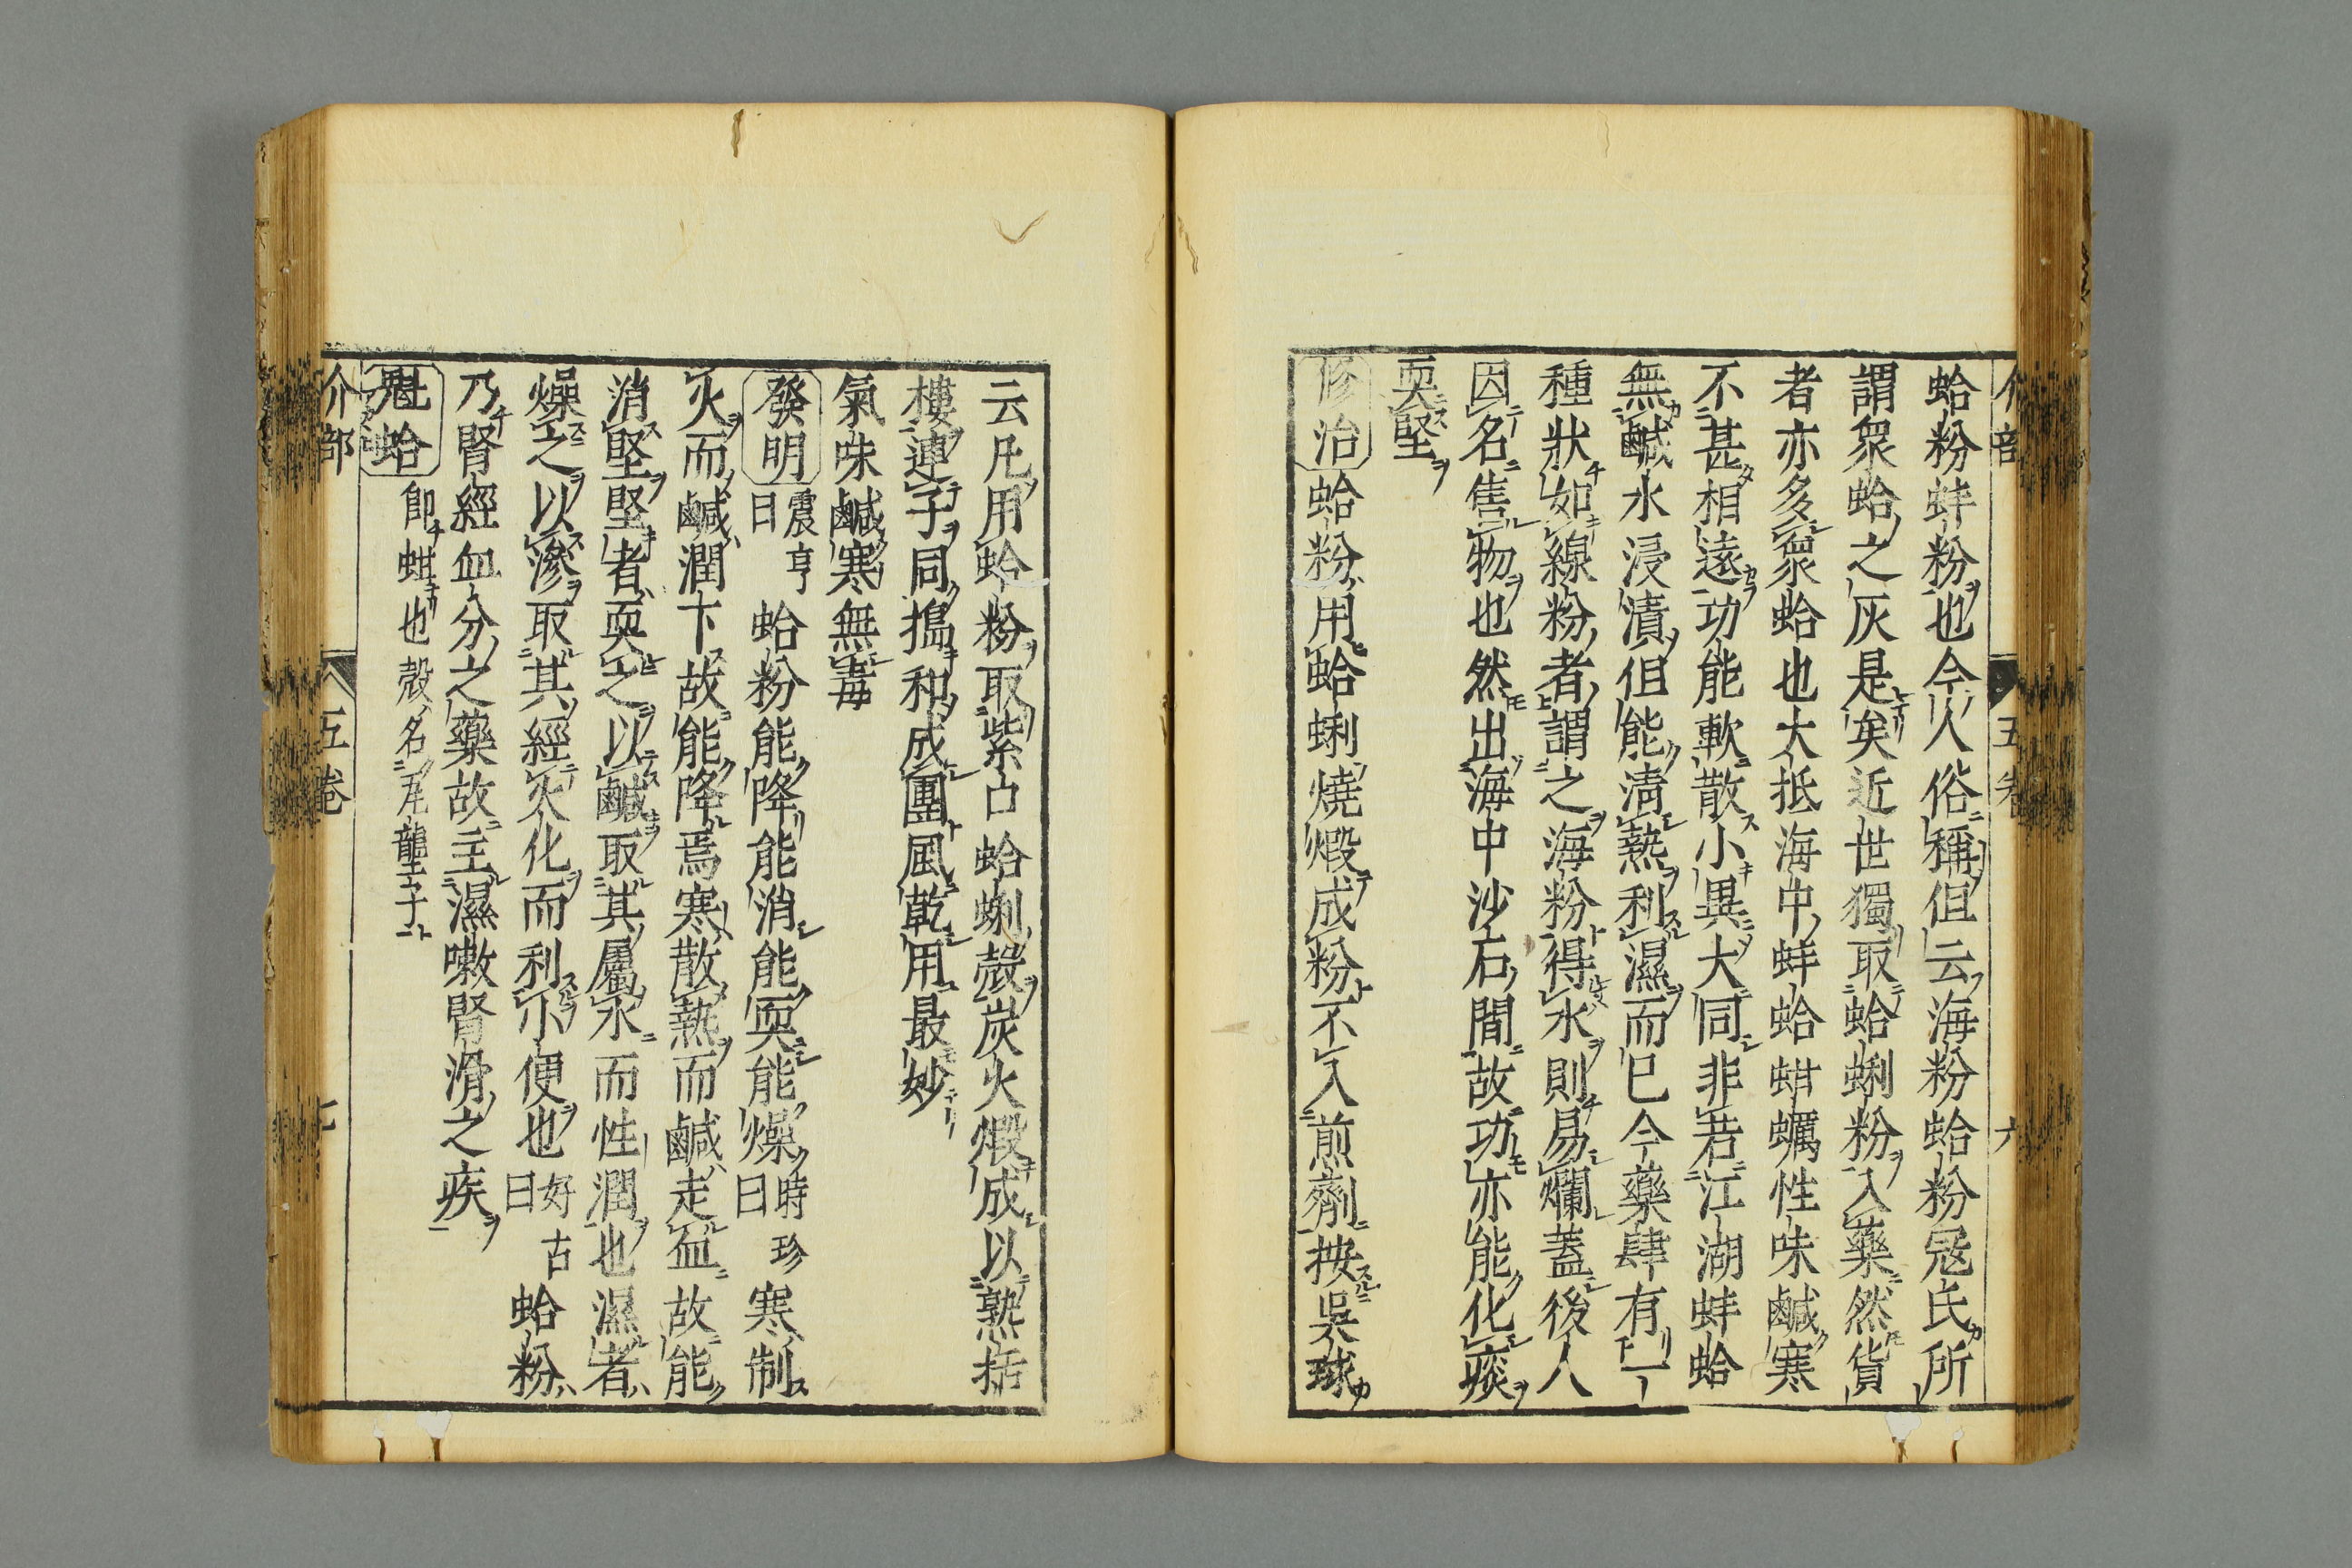 介部 五卷 六
蛤粉蚌粉也今人俗稱但云海粉蛤粉冦氏所
謂衆蛤之灰是矣近世獨取蛤蜊粉入藥然貨
者亦多衆蛤也大抵海中蚌蛤蚶蠣性味鹹寒
不甚相遠功能軟散小異大同非若江湖蚌蛤
無鹹水浸漬但能清熱利濕而已今藥肆有一
種狀如線粉者謂之海粉得水則易爛蓋後人
因名售物也然出海中沙石間故功亦能化痰
耎堅
修治 蛤粉用蛤蜊燒煅成粉不入煎劑按吳球
云凡用蛤粉取紫口蛤蜊殼炭火煅成以熟括
樓連子同搗和成團風乾用最妙
氣味鹹寒無毒
發明 震亨曰 蛤粉能降能消能耎能燥 時珍曰 寒制
火而鹹潤下故能降焉寒散熱而鹹走血故能
消堅堅者耎之以鹹取其屬水而性潤也濕者
燥之以滲取其經火化而利小便也 好古曰 蛤粉
乃腎經血分之藥故主濕嗽腎滑之疾
魁蛤 卽蚶也殼名瓦壟子
介部 五卷 七